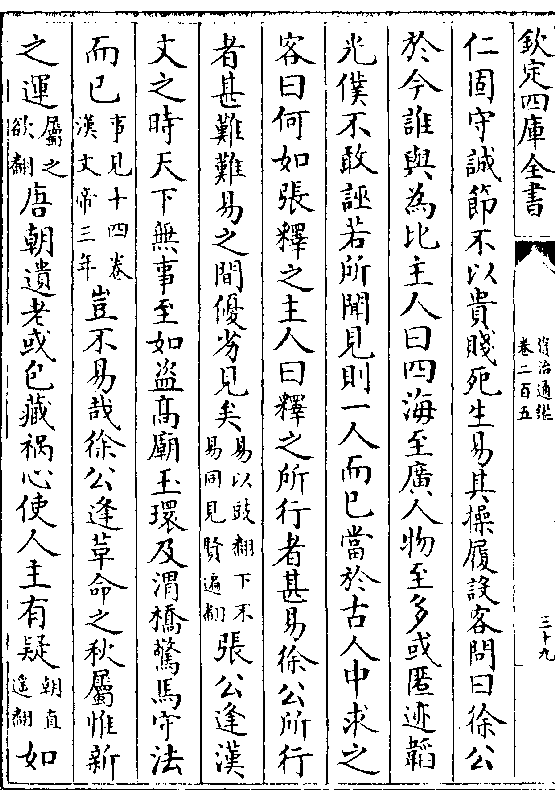 欽定四庫全書
資治通鑑
卷二百五
三十九
仁固守誠節不以貴賤死生易其操履設客問曰徐公
於今誰與為比主人曰四海至廣人物至多或匿迹韜
光僕不敢誣若所聞見則一人而已當於古人中求之
客曰何如張釋之主人曰釋之所行者甚易徐公所行
者甚難難易之間優劣見矣易以豉翻下不易同見賢遍翻張公逢漢
文之時天下無事至如盜高廟玉環及渭橋驚馬守法
而已事見十四卷漢文帝三年豈不易哉徐公逢革命之秋屬惟新
之運屬之欲翻唐朝遺老或包藏禍心使人主有疑朝直遙翻如